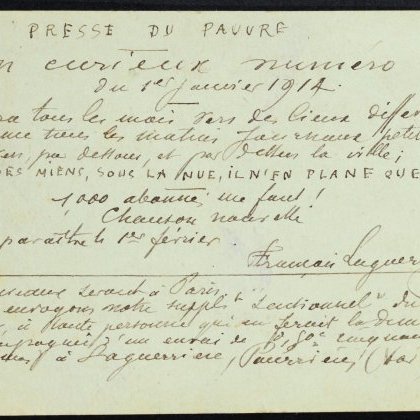 PRESSE DU PAUVRE
n curieux numéro
du 1er janvier 1914.
ra tous les mois vers des lieux diffé
me tous les matins journaux petit
par dessous, et par dessus la ville ;
DES MIENS, SOUS LA NUE, IL N'EN PLANE QUE
1,000 abonnés me faut !
Chanson nouvelle
paraître le 1er février
François Laguer
seront à Paris
envoyons notre supplt "sensionnel" du
à toute personne qui en ferait la dem
un envoi de
à Laguerrière, Pourrières (Var